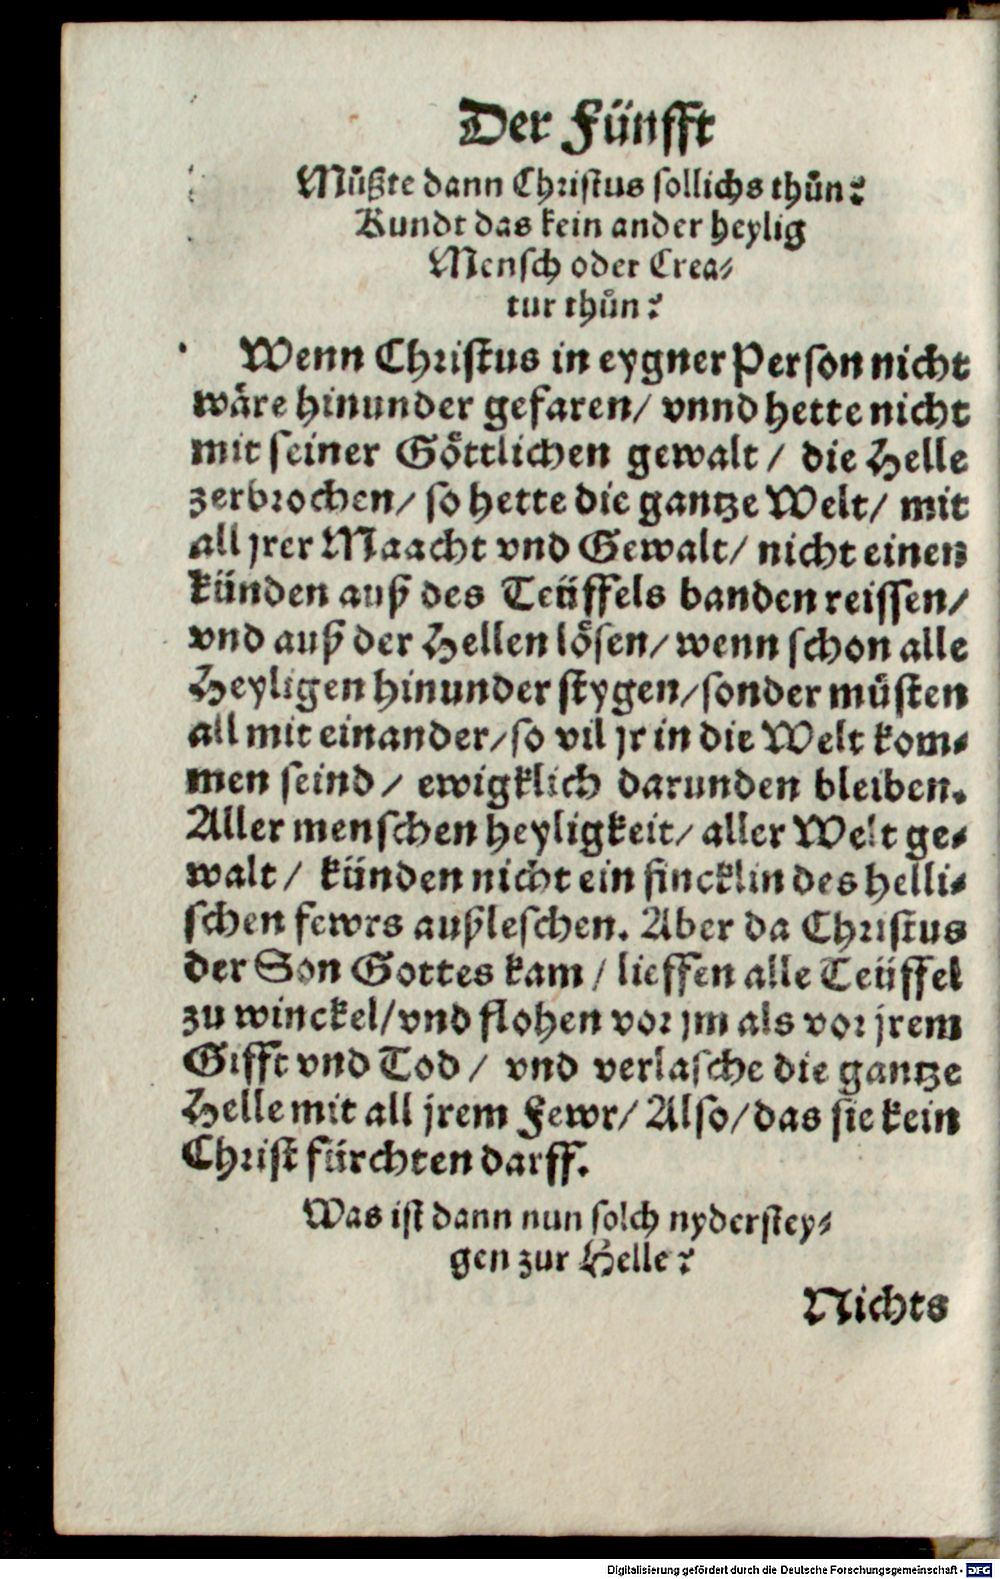 Der Fünfft
Müßte dann Christus sollichs thůn?
Kundt das kein ander heylig
Mensch oder Crea⸗
tur thůn?
Wenn Christus in eygner Person nicht
wäre hinunder gefaren/ vnnd hette nicht
mit seiner Göttlichen gewalt/ die Helle
zerbrochen/ so hette die gantze Welt/ mit
all jrer Maacht vnd Gewalt/ nicht einen
künden auß des Teüffels banden reissen/
vnd auß der Hellen lösen/ wenn schon alle
Heyligen hinunder stygen/ sonder müsten
all mit einander/ so vil jr in die Welt kom⸗
men seind/ ewigklich darunden bleiben.
Aller menschen heyligkeit/ aller Welt ge⸗
walt/ künden nicht ein fincklin des helli⸗
schen fewrs außleschen. Aber da Christus
der Son Gottes kam/ lieffen alle Teüffel
zu winckel/ vnd flohen vor jm als vor jrem
Gifft vnd Tod/ vnd verlasche die gantze
Helle mit all jrem Fewr/ Also/ das sie kein
Christ fürchten darff.
Was ist dann nun solch nyderstey⸗
gen zur Helle?
Nichts
Digitalisierung gefördert durch die Deutsche Forschungsgemeinschaft - DFG